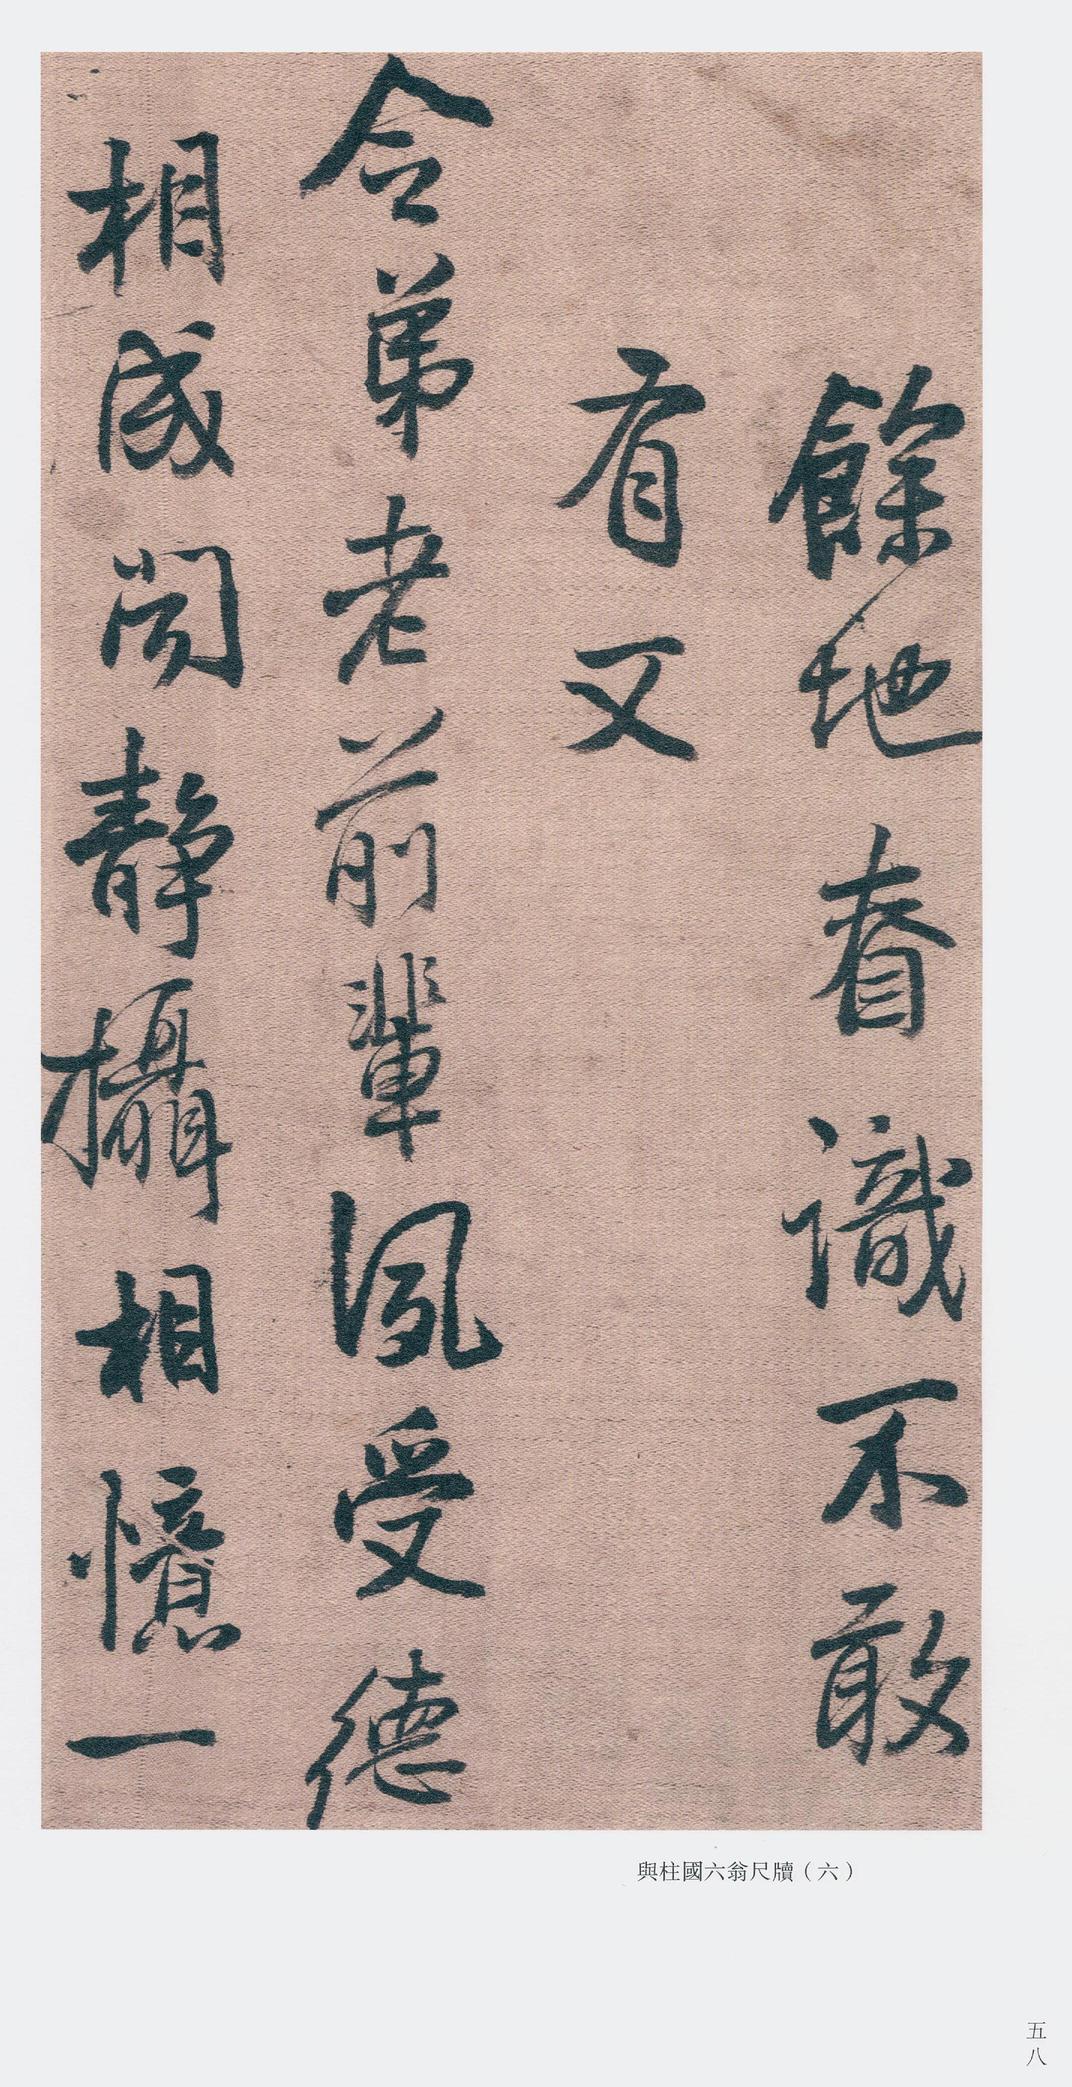 餘地眷識不敢
有又
令弟老前輩夙受德
相成閉靜攝相憶一
與柱國六翁尺牘（六）
五八